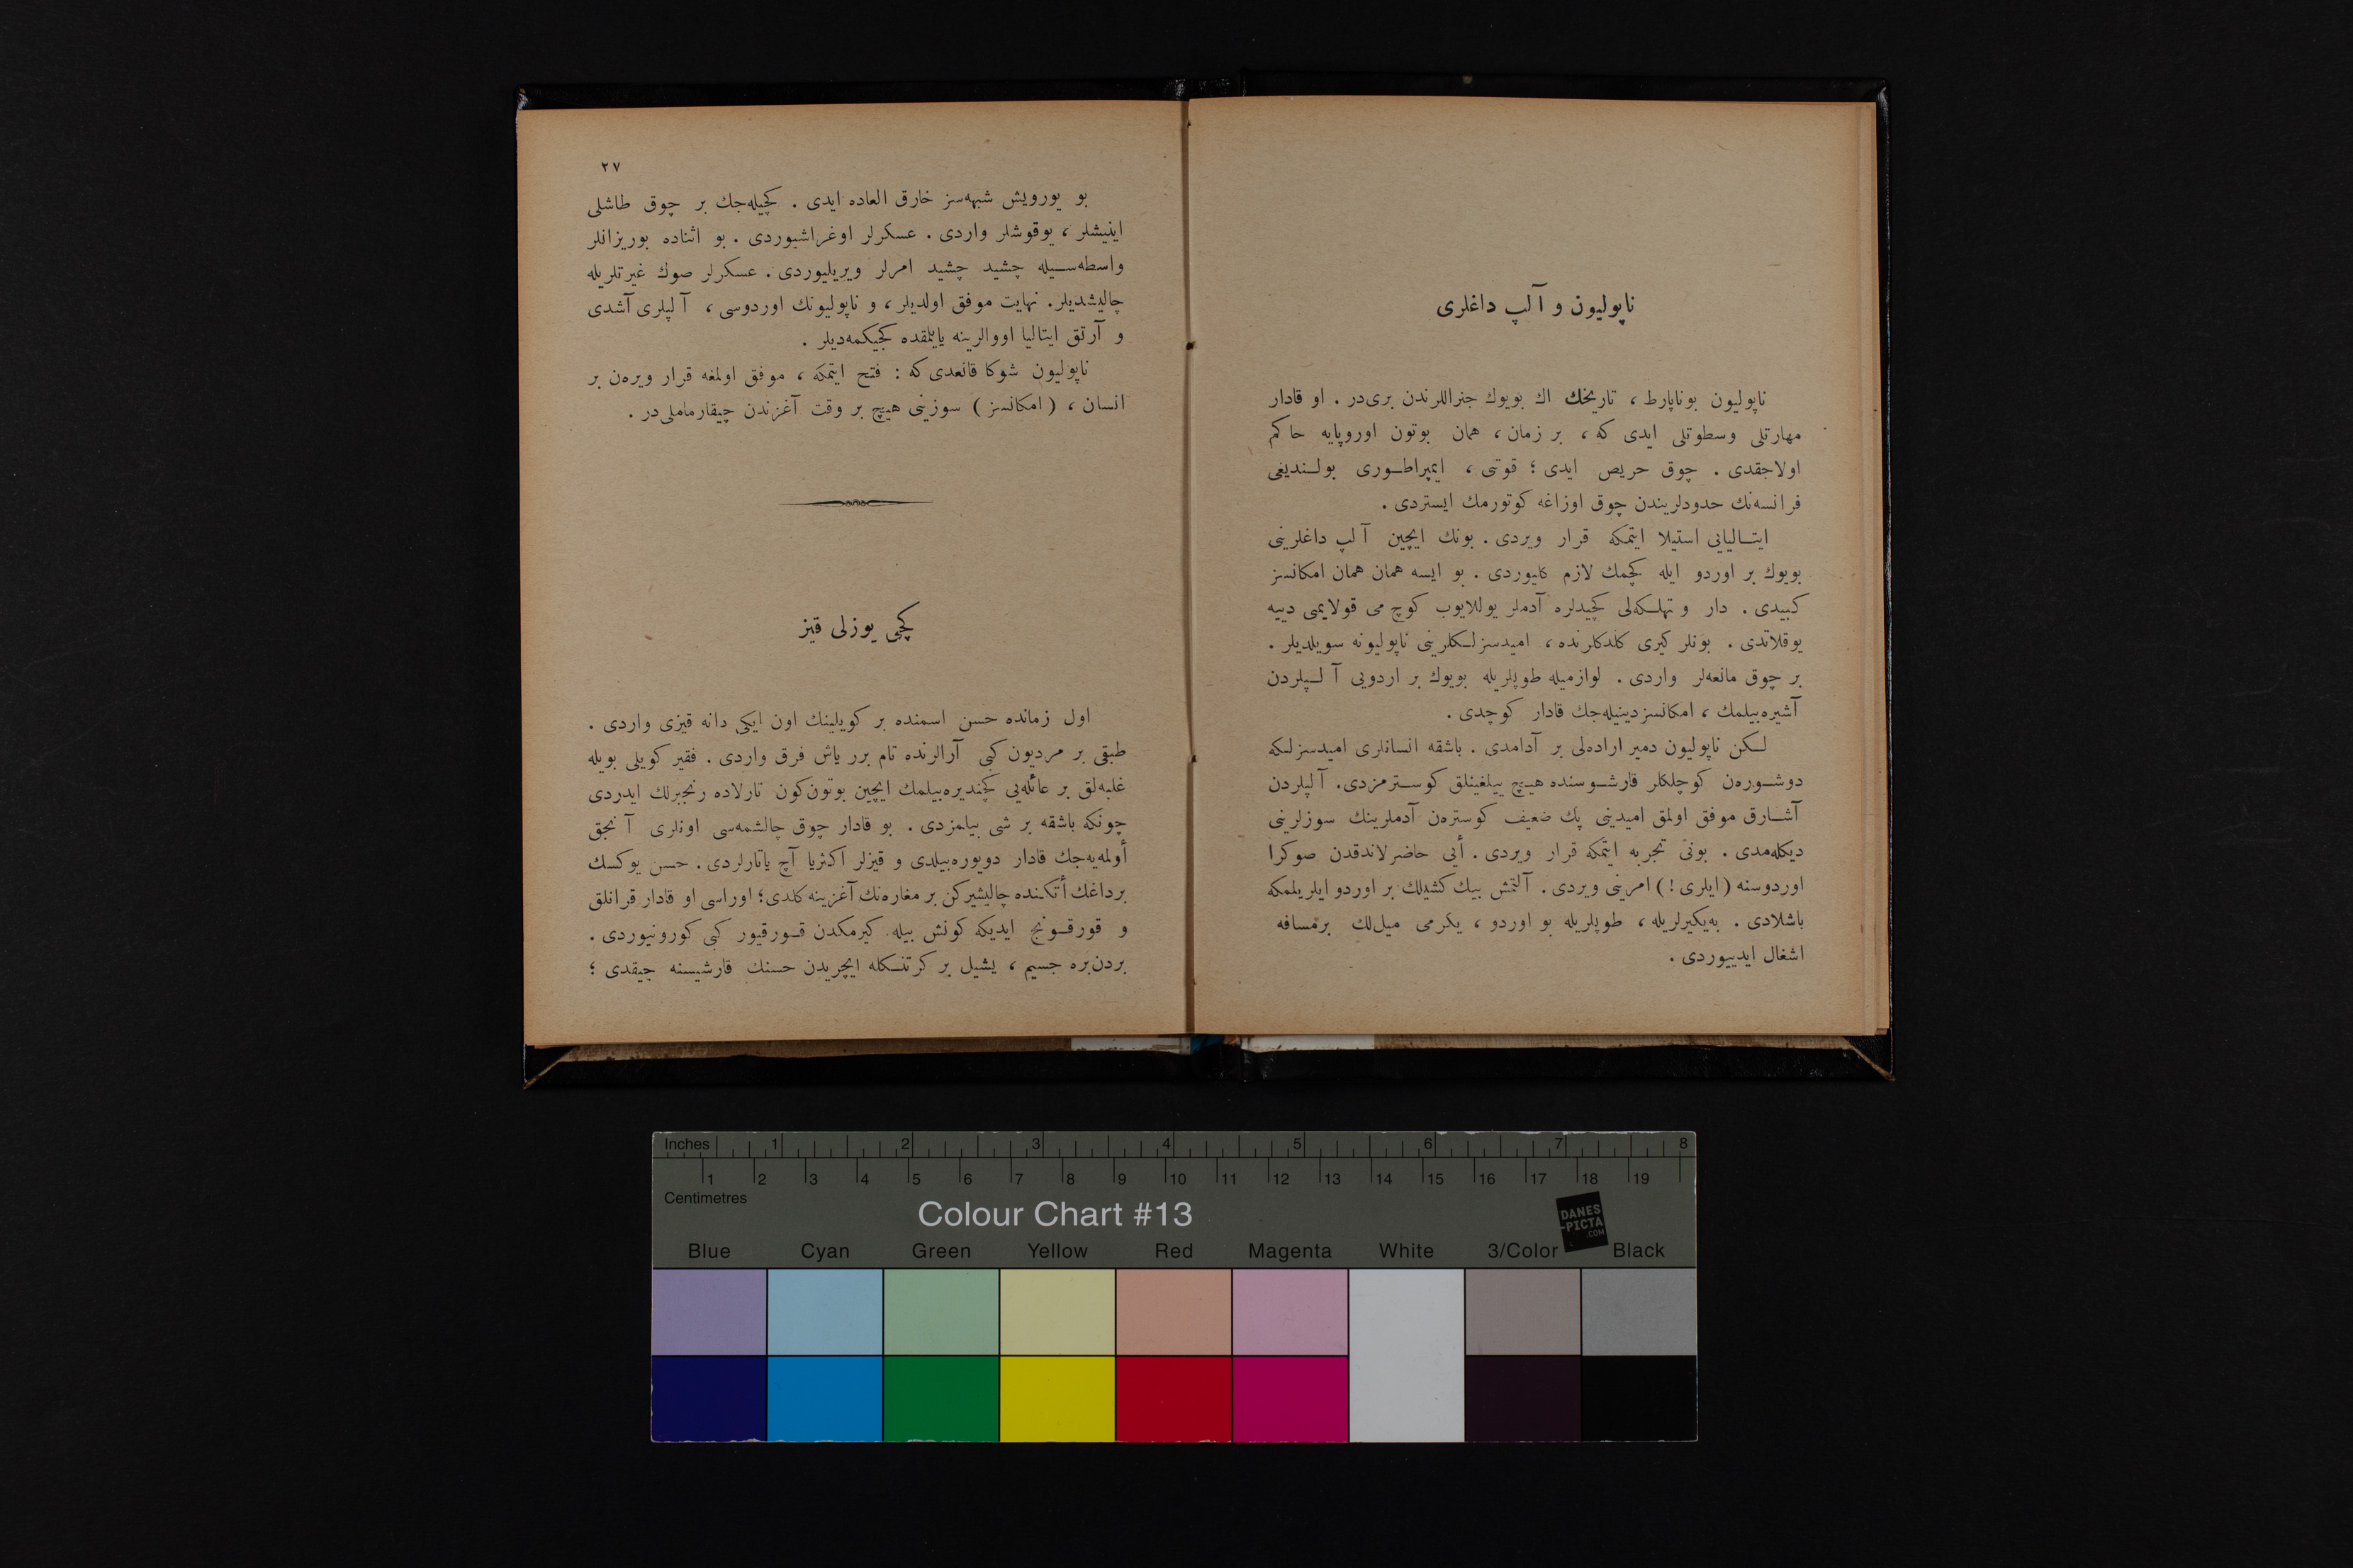 ناپولیون و آلپ داغلری
ناپولیون بوناپارط ، تاریخك اك بویوك جنراللرندن بری‌در . او قادار
مهارتلی وسطوتلی ایدی که ، بر زمان ، همان بوتون اوروپایه حاکم
اولاجقدی . چوق حریص ایدی ؛ قوتنی ، ایمپراطوری بولندیغی
فرانسه‌نك حدودلریندن چوق اوزاغه کوتورمك ایستردی .
ایتالیایی استیلا ایتمکه قرار ویردی . بونك ایچین آلپ داغلرینی
بویوك بر اوردو ایله کچمك لازم کلیوردی . بو ایسه همان همان امکانسز
کبیدی . دار و تهلکه‌لی کچیدلره آدملر یوللایوب کوچ می قولایمی دییه
یوقلاتدی . بونلر کیری کلدکلرنده ، امیدسزلکلرینی ناپولیونه سویلدیلر .
بر چوق مانعه‌لر واردی . لوازمیله طوپلریله بویوك بر اردویی آلپلردن
آشیره‌بیلمك ، امکانسزدینیله‌جك قادار کوچدی .
لکن ناپولیون دمیر اراده‌لی بر آدامدی . باشقه انسانلری امیدسزلکه
دوشوره‌ن کوچلکلر قارشوسنده هیچ ییلغینلق کوسترمزدی . آلپلردن
آشارق موفق اولمق امیدینی پك ضعیف کوستره‌ن آدملرینك سوزلرینی
دیکله‌مدی . بونی تجربه ایتمکه قرار ویردی . أیی حاضرلاندقدن صوکرا
اوردوسنه ( ایلری ! ) امرینی ویردی . آلتمش بیك کشیلك بر اوردو ایلریلمکه
باشلادی . به‌یکیرلریله ، طوپلریله بو اوردو ، یکرمی میل‌لك برمسافه
اشغال ایدییوردی .
٢٧
بو یورویش شبهه‌سز خارق العاده ایدی . کچیله‌جك بر چوق طاشلی
اینیشلر ، یوقوشلر واردی . عسکرلر اوغراشیوردی . بو اثناده بوریزانلر
واسطه‌سیله چشید چشید امرلر ویریلیوردی . عسکرلر صوك غیرتلریله
چالیشدیلر . نهایت موفق اولدیلر ، و ناپولیونك اوردوسی ، آلپلری آشدی
و آرتق ایتالیا اووالرینه یایلمقده کجیکمه‌دیلر .
ناپولیون شوکا قانعدی که : فتح ایتمکه ، موفق اولمغه قرار ویره‌ن بر
انسان ، ( امکانسز ) سوزینی هیچ بر وقت آغزندن چیقارماملی‌در .
کچی یوزلی قیز
اول زمانده حسن اسمنده بر کویلینك اون ایکی دانه قیزی واردی .
طبقی بر مردیون کبی آرالرنده تام برر یاش فرق واردی . فقیر کویلی بویله
غلبه‌لق بر عائله‌یی کچندیره‌بیلمك ایچین بوتون‌کون تارلاده رنجبرلك ایدردی
چونکه باشقه بر شی بیلمزدی . بو قادار چوق چالشمه‌سی اونلری آنجق
أولمه‌یه‌جك قادار دویوره‌بیلدی و قیزلر اکثریا آچ یاتارلردی . حسن یوکسك
برداغك أتکنده چالیشیرکن بر مغاره‌نك آغزینه کلدی ؛ اوراسی او قادار قرانلق
و قورقونج ایدیکه کونش بیله کیرمکدن قورقیور کبی کورونیوردی .
بردن‌بره جسیم ، یشیل بر کرتنکله ایچریدن حسنك قارشیسنه چیقدی ؛
Inches 1 2 3 4 5 6 7 8
1 2 3 4 5 6 7 8 9 10 11 12 13 14 15 16 17 18 19
Centimetres
Colour Chart #13
DANES
-PICTA
.COM
Blue Cyan Green Yellow Red Magenta White 3/Color Black